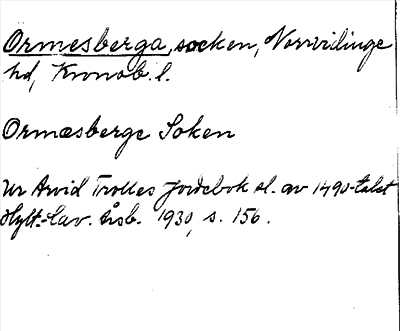 Ormesberga, socken, Norrvidinge
hd, Kronob. l.
Ormæsberge Soken
Ur Arvid Trolles Jordebok sl. av 1490-talet
Hylt.-Cav. Årsb. 1930, s. 156.